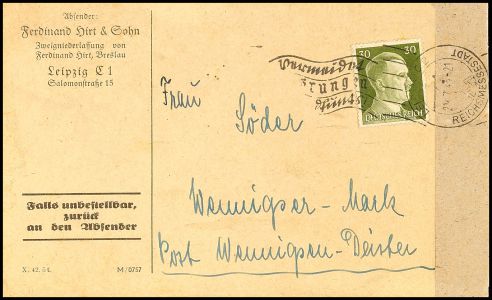 Absender:
Ferdinand Hirt & Sohn
Zweigniederlassung von
Ferdinand Hirt, Breslau
Leipzig C 1
Salomonstraße 15
Falls unbestellbar,
zurück
an den Absender
X. 42. 54.
M/0757
Vermeidet
30 30
DEUTSCHES REICH
REICHSMESSESTADT
Frau
Söder
Wennigser-Mark
Post Wennigsen-Deister